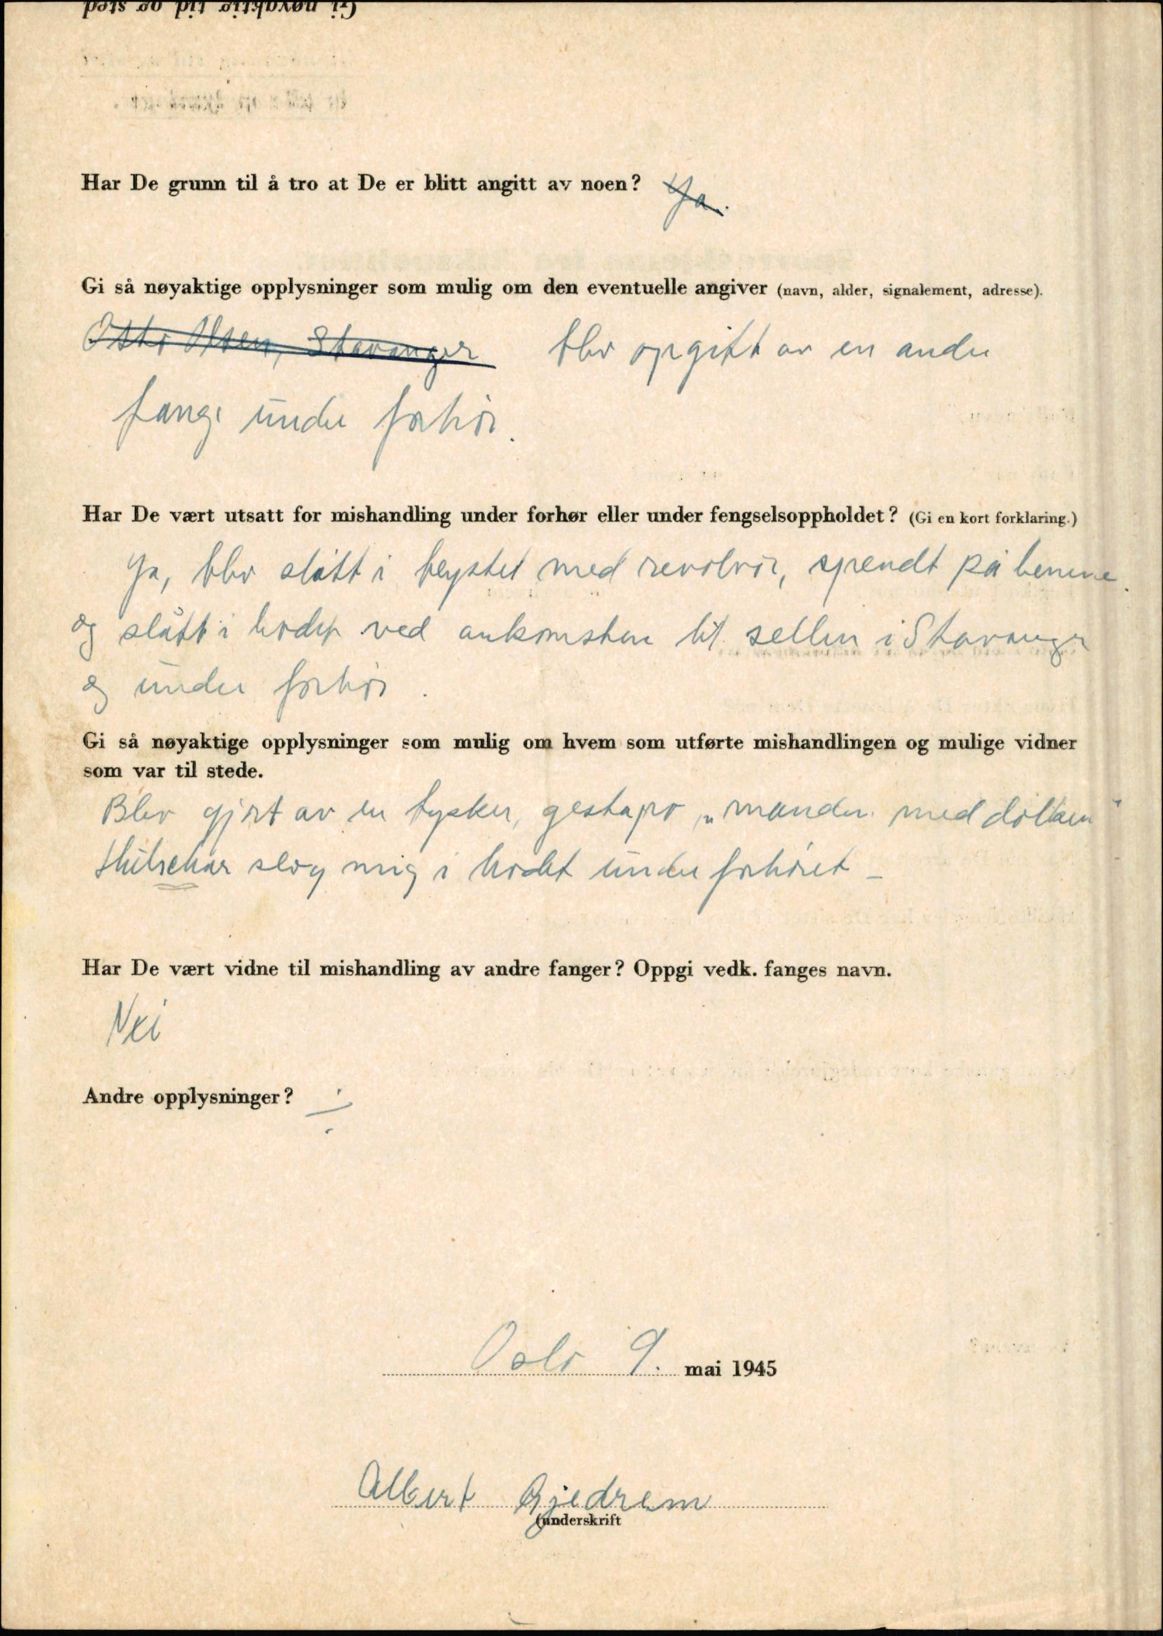 Gi nøyaktig tid og sted
Har De grunn til å tro at De er blitt angitt av noen? Ja.
Gi så nøyaktige opplysninger som mulig om den eventuelle angiver (navn, alder, signalement, adresse).
Olsen, Stavanger blev opgitt av en anden
fange under forhør.
Har De vært utsatt for mishandling under forhør eller under fengselsoppholdet? (Gi en kort forklaring.)
Ja, blev slått i brystet med revolver, spendt på benene
og slått i hodet ved ankomsten til sellen i Stavanger
og under forhør.
Gi så nøyaktige opplysninger som mulig om hvem som utførte mishandlingen og mulige vidner
som var til stede.
Blev gjort av en tysker, gestapo, „manden med dolken"
slog mig i hodet under forhøret -
Har De vært vidne til mishandling av andre fanger? Oppgi vedk. fanges navn.
Nei
Andre opplysninger? ÷
Oslo 9. mai 1945
Albert Gjedrem
(underskrift